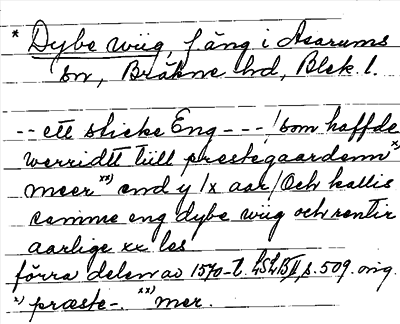 * Dybe wiig, f. äng i Asarums
sn, Bräkne hd, Blek. l.
-- ett sticke Eng --- / som haffde
werridtt tiill prestegaardenn x)
meer xx) end y /x aar / Och kallis
samme eng dybe wiig och rentir
aarlige xx les
förra delen av 1570-t. s. 509. orig.
x) præste-. xx) mer.